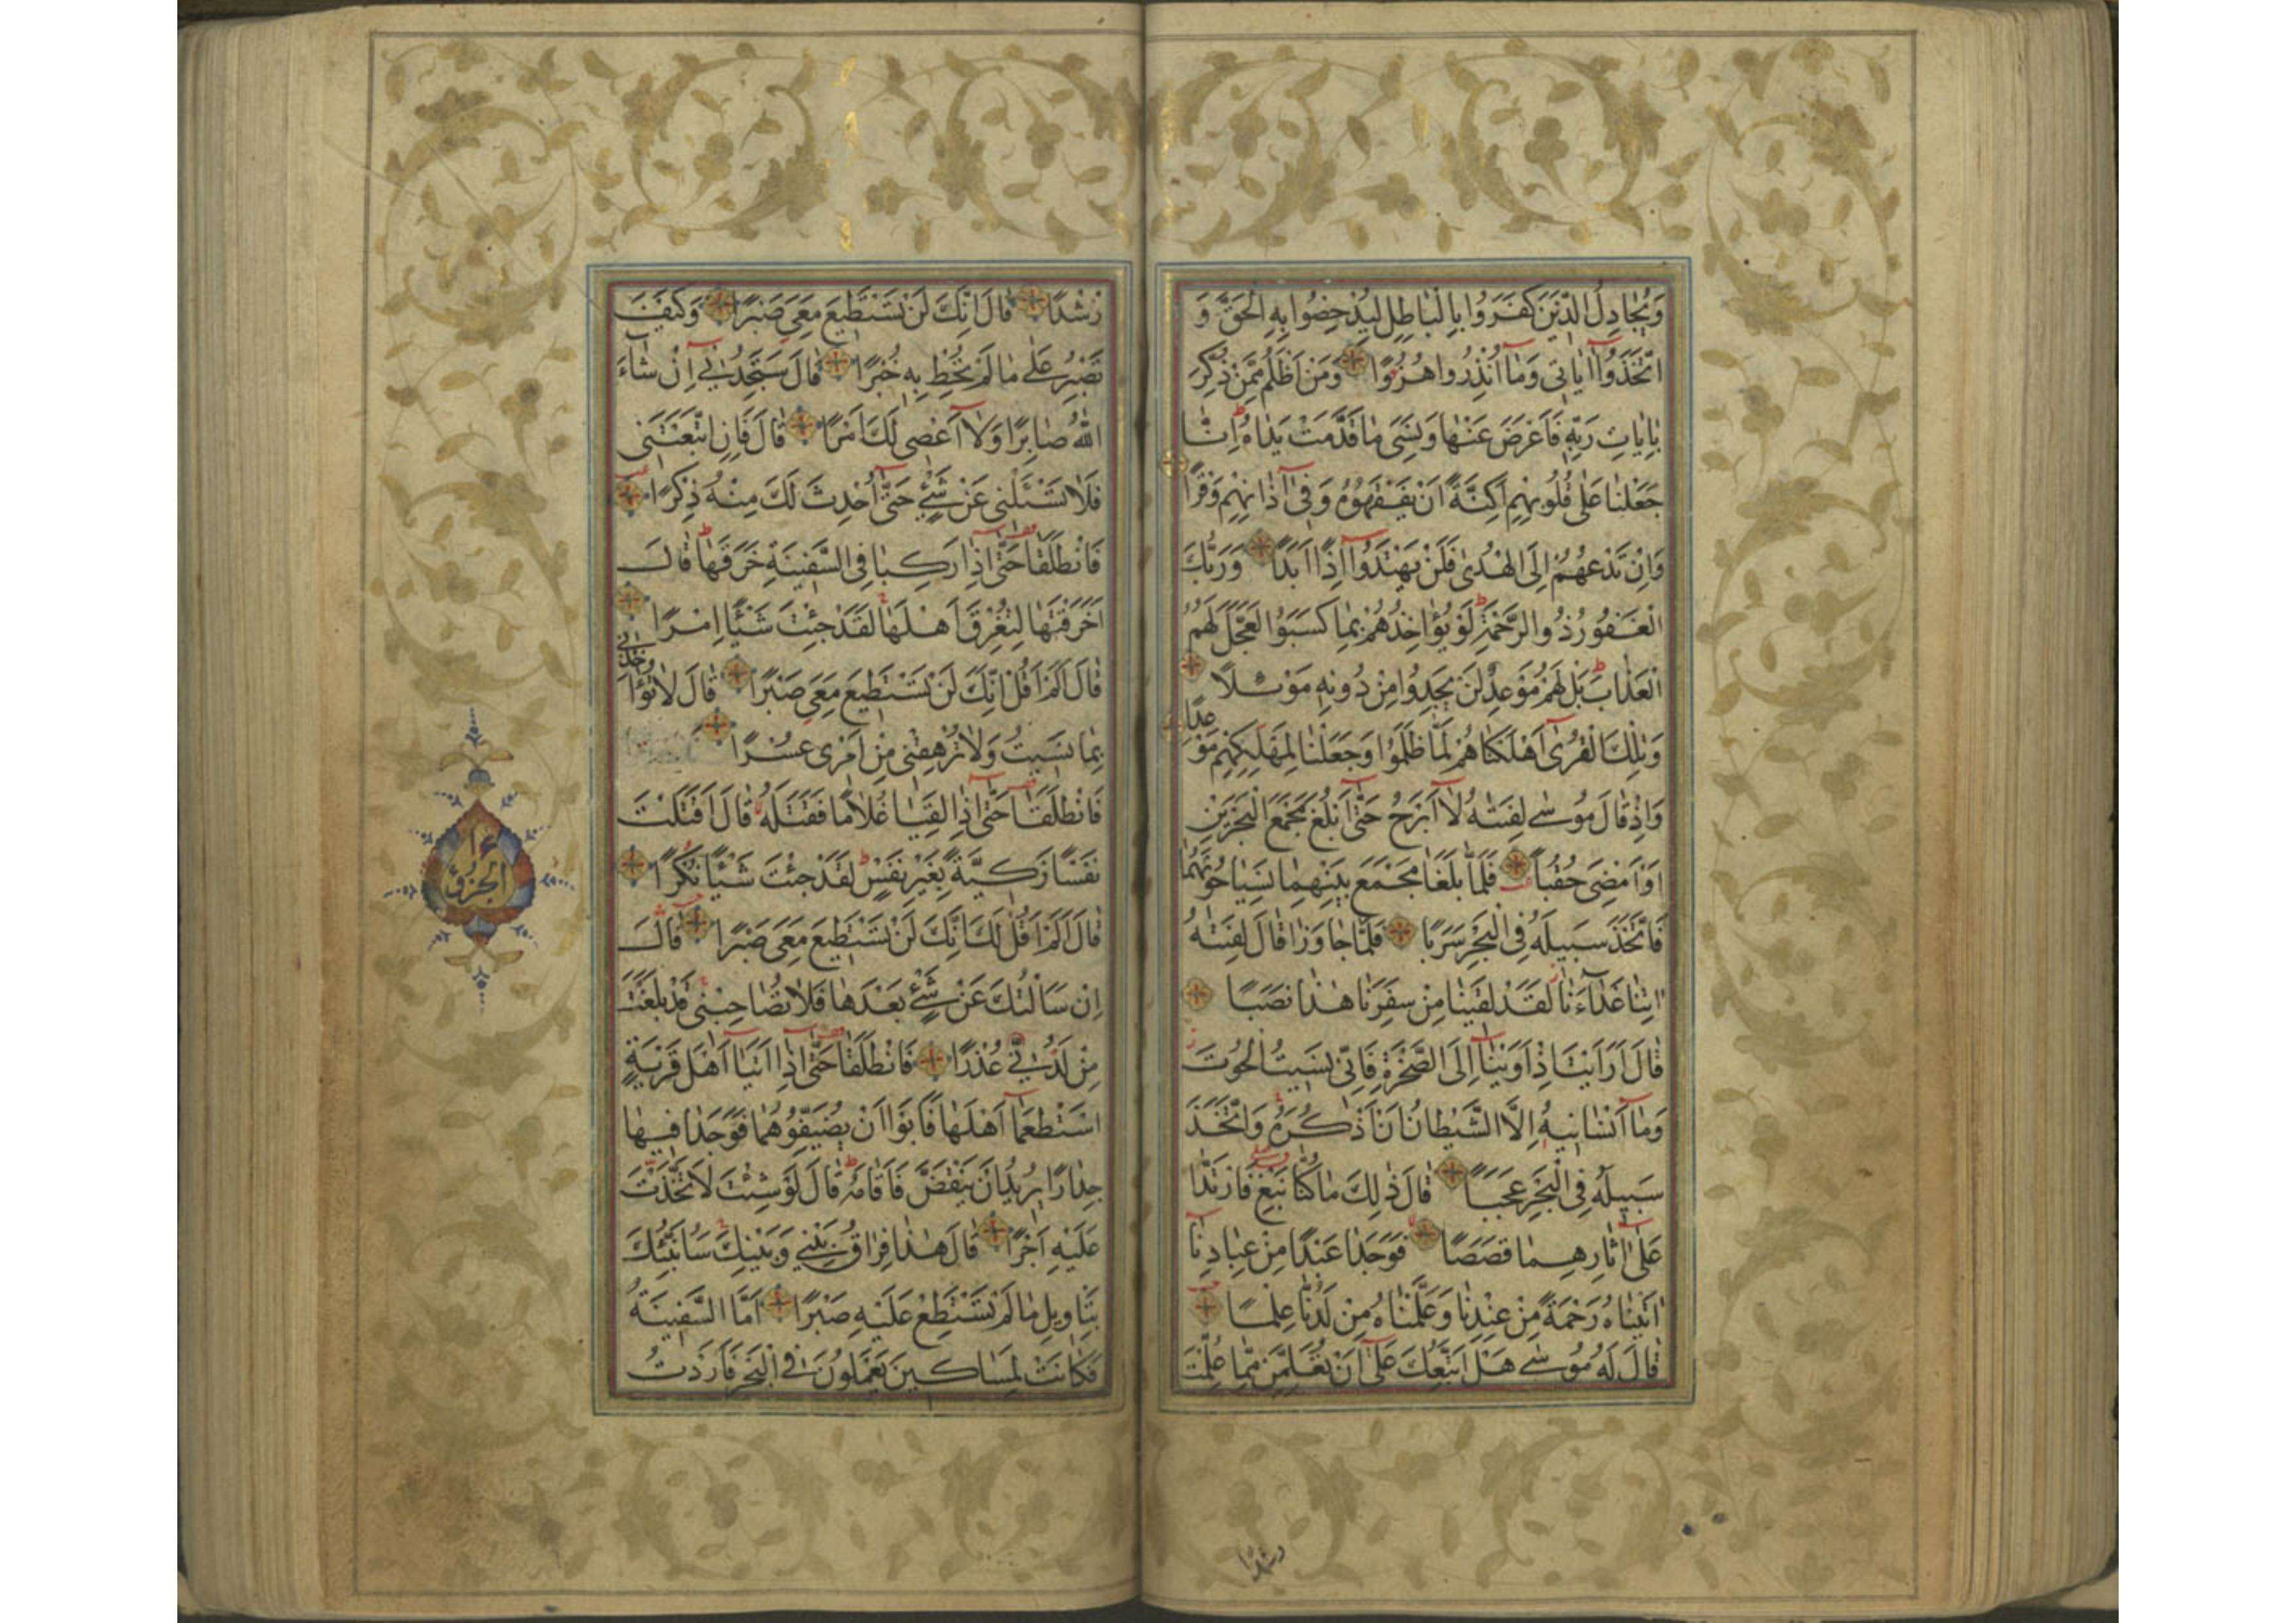 وَيُجَادِلُ الَّذِينَ كَفَرُوا بِالْبَاطِلِ لِيُدْحِضُوا بِهِ الْحَقَّ وَ
اتَّخَذُوا آيَاتِي وَمَا أُنْذِرُوا هُزُوًا وَمَنْ أَظْلَمُ مِمَّنْ ذُكِّرَ
بِآيَاتِ رَبِّهِ فَأَعْرَضَ عَنْهَا وَنَسِيَ مَا قَدَّمَتْ يَدَاهُ إِنَّا
جَعَلْنَا عَلَى قُلُوبِهِمْ أَكِنَّةً أَنْ يَفْقَهُوهُ وَفِي آذَانِهِمْ وَقْرًا
وَإِنْ تَدْعُهُمْ إِلَى الْهُدَى فَلَنْ يَهْتَدُوا إِذًا أَبَدًا وَرَبُّكَ
الْغَفُورُ ذُو الرَّحْمَةِ لَوْ يُؤَاخِذُهُمْ بِمَا كَسَبُوا لَعَجَّلَ لَهُمُ
الْعَذَابَ بَلْ لَهُمْ مَوْعِدٌ لَنْ يَجِدُوا مِنْ دُونِهِ مَوْئِلًا
وَتِلْكَ الْقُرَى أَهْلَكْنَاهُمْ لَمَّا ظَلَمُوا وَجَعَلْنَا لِمَهْلِكِهِمْ مَوْعِدًا
وَإِذْ قَالَ مُوسَى لِفَتَاهُ لَا أَبْرَحُ حَتَّى أَبْلُغَ مَجْمَعَ الْبَحْرَيْنِ
أَوْ أَمْضِيَ حُقُبًا فَلَمَّا بَلَغَا مَجْمَعَ بَيْنِهِمَا نَسِيَا حُوتَهُمَا
فَاتَّخَذَ سَبِيلَهُ فِي الْبَحْرِ سَرَبًا فَلَمَّا جَاوَزَا قَالَ لِفَتَاهُ
آتِنَا غَدَاءَنَا لَقَدْ لَقِينَا مِنْ سَفَرِنَا هَذَا نَصَبًا
قَالَ أَرَأَيْتَ إِذْ أَوَيْنَا إِلَى الصَّخْرَةِ فَإِنِّي نَسِيتُ الْحُوتَ
وَمَا أَنْسَانِيهُ إِلَّا الشَّيْطَانُ أَنْ أَذْكُرَهُ وَاتَّخَذَ
سَبِيلَهُ فِي الْبَحْرِ عَجَبًا قَالَ ذَلِكَ مَا كُنَّا نَبْغِ فَارْتَدَّا
عَلَى آثَارِهِمَا قَصَصًا فَوَجَدَا عَبْدًا مِنْ عِبَادِنَا
آتَيْنَاهُ رَحْمَةً مِنْ عِنْدِنَا وَعَلَّمْنَاهُ مِنْ لَدُنَّا عِلْمًا
قَالَ لَهُ مُوسَى هَلْ أَتَّبِعُكَ عَلَى أَنْ تُعَلِّمَنِ مِمَّا عُلِّمْتَ
رشدا
رُشْدًا قَالَ إِنَّكَ لَنْ تَسْتَطِيعَ مَعِيَ صَبْرًا وَكَيْفَ
تَصْبِرُ عَلَى مَا لَمْ تُحِطْ بِهِ خُبْرًا قَالَ سَتَجِدُنِي إِنْ شَاءَ
اللَّهُ صَابِرًا وَلَا أَعْصِي لَكَ أَمْرًا قَالَ فَإِنِ اتَّبَعْتَنِي
فَلَا تَسْئَلْنِي عَنْ شَيْءٍ حَتَّى أُحْدِثَ لَكَ مِنْهُ ذِكْرًا
فَانْطَلَقَا حَتَّى إِذَا رَكِبَا فِي السَّفِينَةِ خَرَقَهَا قَالَ
أَخَرَقْتَهَا لِتُغْرِقَ أَهْلَهَا لَقَدْ جِئْتَ شَيْئًا إِمْرًا
قَالَ أَلَمْ أَقُلْ إِنَّكَ لَنْ تَسْتَطِيعَ مَعِيَ صَبْرًا قَالَ لَا تُؤَاخِذْنِي
بِمَا نَسِيتُ وَلَا تُرْهِقْنِي مِنْ أَمْرِي عُسْرًا
فَانْطَلَقَا حَتَّى إِذَا لَقِيَا غُلَامًا فَقَتَلَهُ قَالَ أَقَتَلْتَ
نَفْسًا زَكِيَّةً بِغَيْرِ نَفْسٍ لَقَدْ جِئْتَ شَيْئًا نُكْرًا
قَالَ أَلَمْ أَقُلْ لَكَ إِنَّكَ لَنْ تَسْتَطِيعَ مَعِيَ صَبْرًا قَالَ
إِنْ سَأَلْتُكَ عَنْ شَيْءٍ بَعْدَهَا فَلَا تُصَاحِبْنِي قَدْ بَلَغْتَ
مِنْ لَدُنِّي عُذْرًا فَانْطَلَقَا حَتَّى إِذَا أَتَيَا أَهْلَ قَرْيَةٍ
اسْتَطْعَمَا أَهْلَهَا فَأَبَوْا أَنْ يُضَيِّفُوهُمَا فَوَجَدَا فِيهَا
جِدَارًا يُرِيدُ أَنْ يَنْقَضَّ فَأَقَامَهُ قَالَ لَوْ شِئْتَ لَاتَّخَذْتَ
عَلَيْهِ أَجْرًا قَالَ هَذَا فِرَاقُ بَيْنِي وَبَيْنِكَ سَأُنَبِّئُكَ
بِتَأْوِيلِ مَا لَمْ تَسْتَطِعْ عَلَيْهِ صَبْرًا أَمَّا السَّفِينَةُ
فَكَانَتْ لِمَسَاكِينَ يَعْمَلُونَ فِي الْبَحْرِ فَأَرَدْتُ
الجزو